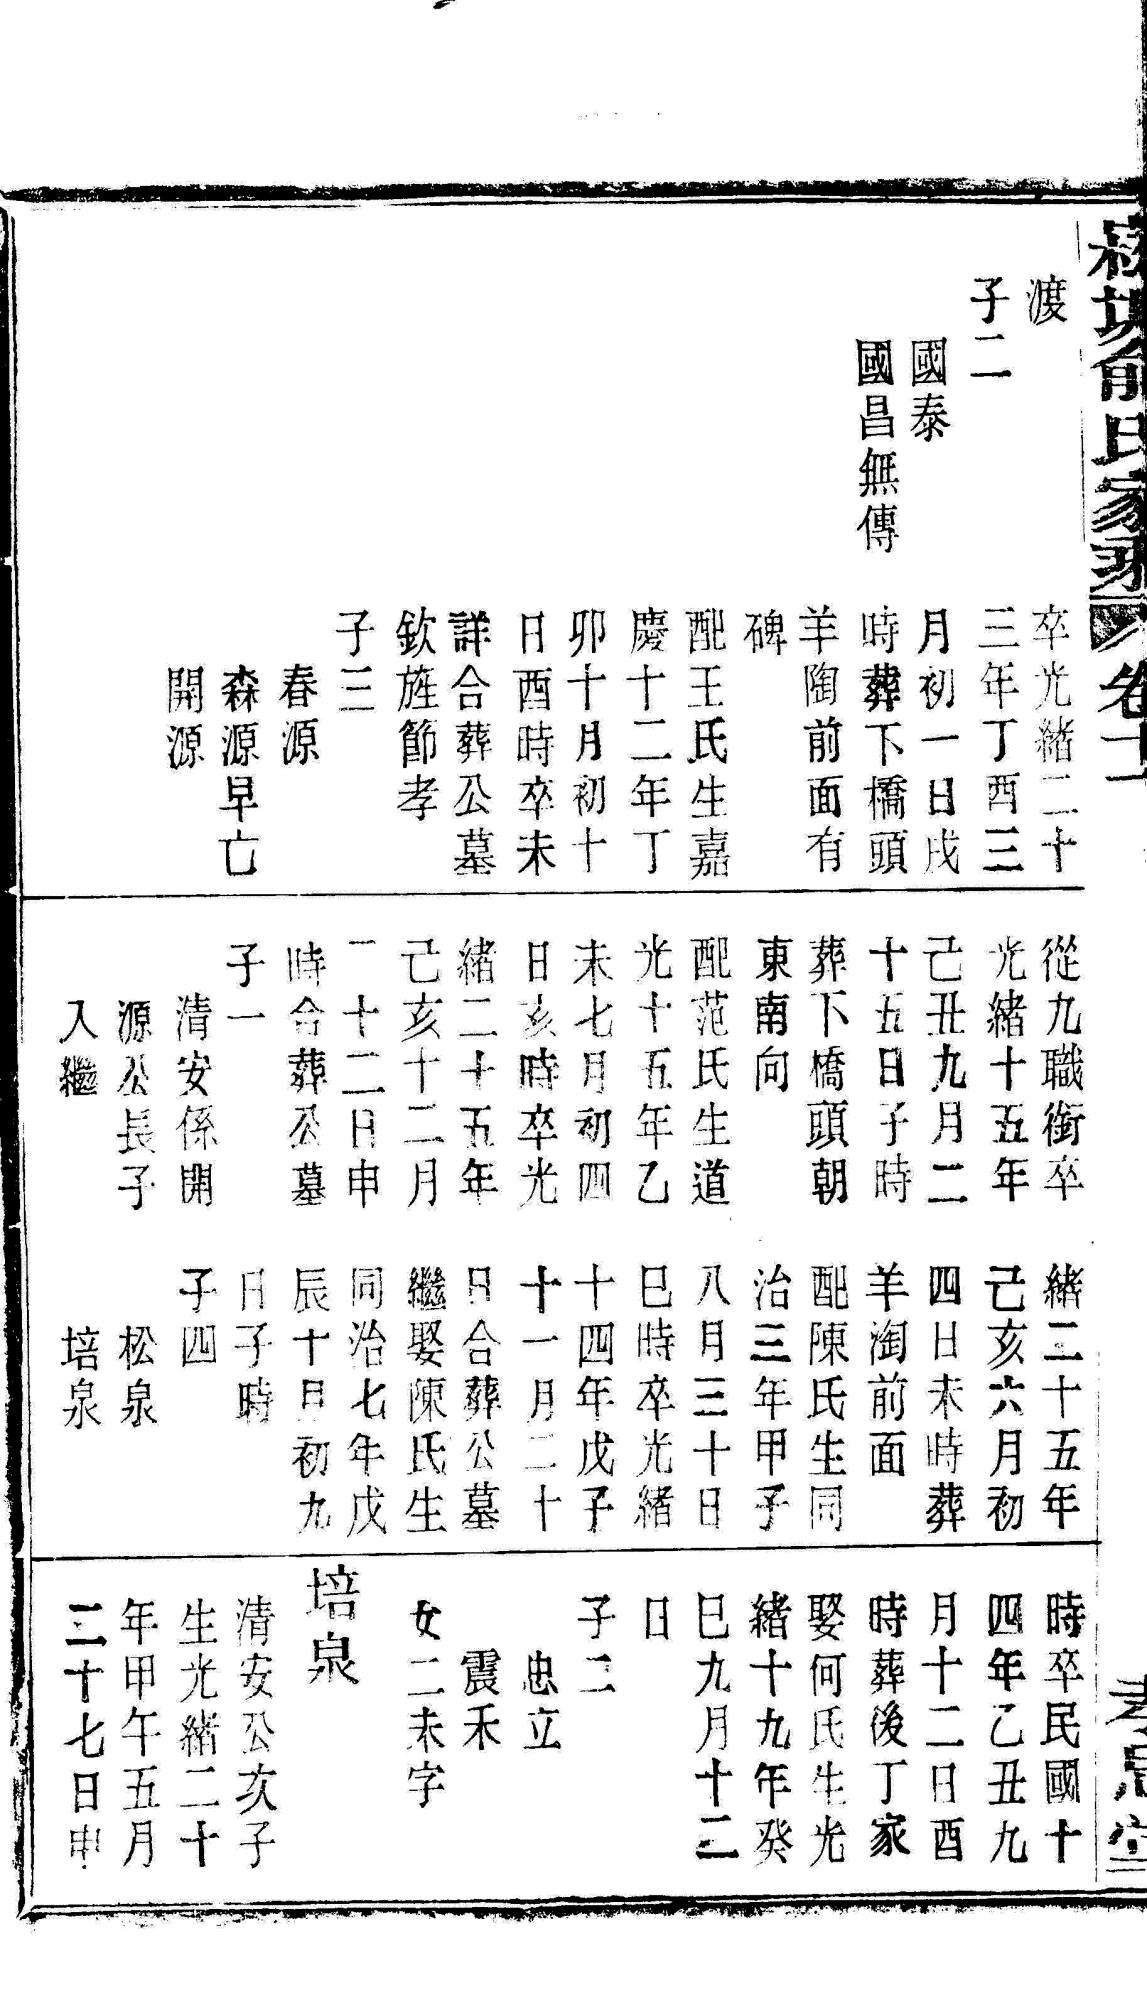 俞氏家乘
卷十一
孝思堂
渡
子二
國泰
國昌無傳
卒光緒二十
三年丁酉三
月初一日戌
時葬下橋頭
羊陶前面有
碑
配王氏生嘉
慶十二年丁
卯十月初十
日酉時卒未
詳合葬公墓
欽旌節孝
子三
春源
森源早亡
開源
從九職銜卒
光緒十五年
己丑九月二
十五日子時
葬下橋頭朝
東南向
配范氏生道
光十五年乙
未七月初四
日亥時卒光
緒二十五年
己亥十二月
二十二日申
時合葬公墓
子一
清安係開
源公長子
入繼
緒二十五年
己亥六月初
四日未時葬
羊淘前面
配陳氏生同
治三年甲子
八月三十日
巳時卒光緒
十四年戊子
十一月二十
日合葬公墓
繼娶陳氏生
同治七年戊
辰十月初九
日子時
子四
松泉
培泉
時卒民國十
四年乙丑九
月十二日酉
時葬後丁家
娶何氏生光
緒十九年癸
巳九月十二
日
子二
忠立
震禾
女二未字
培泉
清安公次子
生光緒二十
年甲午五月
二十七日申